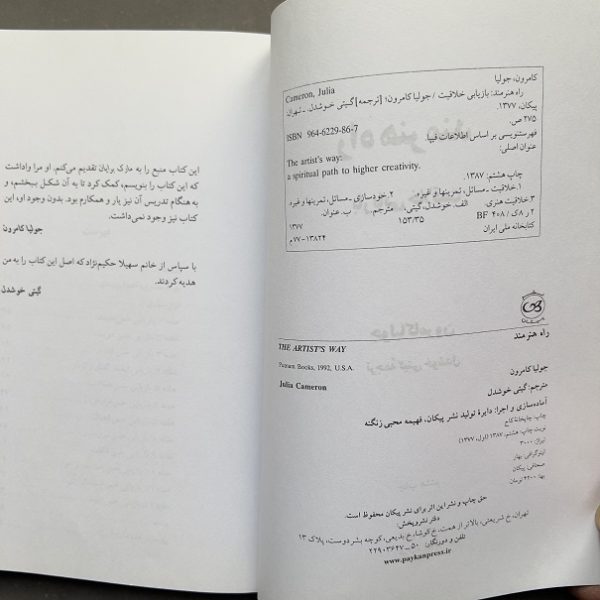 این کتاب منبع را به مارک برایان تقدیم می‌کنم. او مرا واداشت
که این کتاب را بنویسم، کمک کرد تا به آن شکل ببخشم، و
به هنگام تدریس آن نیز یار و همکارم بود. بدون وجود او، این
کتاب نیز وجود نمی‌داشت.
جولیا کامرون
با سپاس از خانم سهیلا حکیم‌نژاد که اصل این کتاب را به من
هدیه کردند.
گیتی خوشدل
کامرون، جولیا
Cameron, Julia
راه هنرمند: بازیابی خلاقیت / جولیا کامرون؛ [ترجمه] گیتی خوشدل. ـ تهران:
پیکان، ۱۳۷۷.
۲۷۵ ص.
ISBN 964-6229-86-7
فهرستنویسی بر اساس اطلاعات فیپا
عنوان اصلی:
The artist's way:
a spiritual path to higher creativity.
چاپ هشتم: ۱۳۸۷.
۱. خلاقیت ـ مسائل، تمرینها و غیره. ۲. خودسازی ـ مسائل، تمرینها و غیره
۳. خلاقیت هنری. الف. خوشدل، گیتی، مترجم. ب. عنوان.
۲ ر ۸ ک / BF ۴۰۸
۱۵۳/۳۵
۱۳۷۷
کتابخانه ملی ایران
۱۳۸۲۴-۷۷م
راه هنرمند
THE ARTIST'S WAY
Putnam Books, 1992, U.S.A.
Julia Cameron
جولیا کامرون
مترجم: گیتی خوشدل
آماده‌سازی و اجرا: دایرهٔ تولید نشر پیکان، فهیمه محبی زنگنه
چاپ: چاپخانهٔ کاج
نوبت چاپ: هشتم، ۱۳۸۷ (اول، ۱۳۷۷)
تیراژ: ۳۰۰۰
لیتوگرافی: بهار
صحافی: پیکان
بها: ۴۲۰۰ تومان
حق چاپ و نشر این اثر برای نشر پیکان محفوظ است.
دفتر نشر و پخش:
تهران، خ شریعتی، بالاتر از همت، خ گلوشا، خ بدیعی، کوچه بشردوست، پلاک ۱۳
تلفن و دورنگار: ۵۰ ــ ۲۲۹۰۳۶۴۷
www.paykanpress.ir